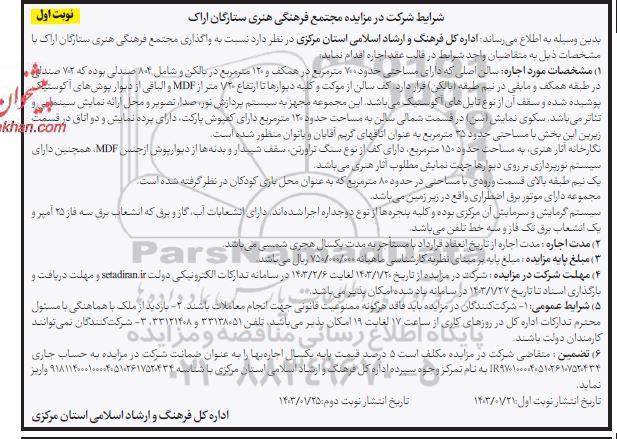 نوبت اول
شرایط شرکت در مزایده مجتمع فرهنگی هنری ستارگان اراک
بدین وسیله به اطلاع می‌رساند: اداره کل فرهنگ و ارشاد اسلامی استان مرکزی در نظر دارد نسبت به واگذاری مجتمع فرهنگی هنری ستارگان اراک با
مشخصات ذیل به متقاضیان واجد شرایط در قالب عقد اجاره اقدام نماید:
۱) مشخصات مورد اجاره: سالن اصلی که دارای مساحتی حدود ۷۰۰ مترمربع در همکف و ۱۲۰ مترمربع در بالکن و شامل ۸۰۴ صندلی بوده که ۷۰۲ صندلی
در طبقه همکف و مابقی در نیم طبقه (بالکن) قرار دارد. کف سالن از موکت و کلیه دیوارها تا ارتفاع ۱/۲۰ متر از MDF و الباقی از دیوارپوش‌های آکوستیک
پوشیده شده و سقف آن از نوع تایل‌های آکوستیک می‌باشد. این مجموعه مجهز به سیستم پردازش نور، صدا، تصویر و محل ارائه نمایش سینمایی و
تئاتر می‌باشد. سکوی نمایش (سن) در قسمت شمالی سالن به مساحت حدود ۱۲۰ مترمربع دارای کفپوش پارکت، دارای پرده نمایش و دو اتاق در قسمت
زیرین این بخش با مساحتی حدود ۳۵ مترمربع به عنوان اتاقهای گریم آقایان و بانوان منظور شده است.
نگارخانه آثار هنری، به مساحت حدود ۱۵۰ مترمربع، دارای کف از نوع سنگ تراورتن، سقف شیبدار و بدنه‌ها از دیوارپوش ازجنس MDF، همچنین دارای
سیستم نورپردازی بر روی دیوارها جهت نمایش مطلوب آثار هنری می‌باشد.
یک نیم طبقه بالای قسمت ورودی با مساحتی در حدود ۸۰ مترمربع که به عنوان محل بازی کودکان در نظر گرفته شده است.
مجموعه دارای موتور برق اضطراری واقع در زیر زمین می‌باشد.
سیستم گرمایش و سرمایش آن مرکزی بوده و کلیه پنجره‌ها از نوع دوجداره اجرا شده‌اند. دارای انشعابات آب، گاز و برق که انشعاب برق سه فاز ۲۵ آمپر و
یک انشعاب برق تک فاز و سه خط تلفن می‌باشد.
۲) مدت اجاره : مدت اجاره از تاریخ انعقاد قرارداد با مستأجر به مدت یکسال هجری شمسی می‌باشد.
۳) مبلغ پایه مزایده : مبلغ پایه بر مبنای نظریه کارشناسی ماهیانه ۷۵۰/۰۰۰/۰۰۰ ریال می‌باشد.
۴) مهلت شرکت در مزایده : شرکت در مزایده از تاریخ ۱۴۰۳/۱/۲۰ لغایت ۱۴۰۳/۲/۶ در سامانه تدارکات الکترونیکی دولت setadiran.ir و مهلت دریافت و
بارگذاری اسناد تا تاریخ ۱۴۰۳/۱/۲۷ در سامانه یاد شده امکان پذیر می‌باشد.
۵) شرایط عمومی: ۱- شرکت‌کنندگان در مزایده باید فاقد هرگونه ممنوعیت قانونی جهت انجام معاملات باشند. ۲- بازدید از ملک با هماهنگی با مسئول
محترم تدارکات اداره کل در روزهای کاری از ساعت ۱۷ لغایت ۱۹ امکان پذیر می‌باشد، تلفن ۳۳۱۳۸۰۵۱ و ۳۳۱۲۱۴۰۸. ۳- شرکت‌کنندگان نمی‌توانند
کارمندان دولت باشند.
۶) تضمین : متقاضی شرکت در مزایده مکلف است ۵ درصد قیمت پایه یکسال اجاره‌بها را به عنوان ضمانت شرکت در مزایده به حساب جاری
به نام تمرکز وجوه سپرده اداره کل فرهنگ و ارشاد اسلامی استان مرکزی با شناسه واریز
نماید.
تاریخ انتشار نوبت اول: ۱۴۰۳/۰۱/۲۱ تاریخ انتشار نوبت دوم: ۱۴۰۳/۰۱/۲۵
اداره کل فرهنگ و ارشاد اسلامی استان مرکزی
پیشخوان
khan.com
ParsNamadData
پایگاه اطلاع رسانی مناقصه و مزایده